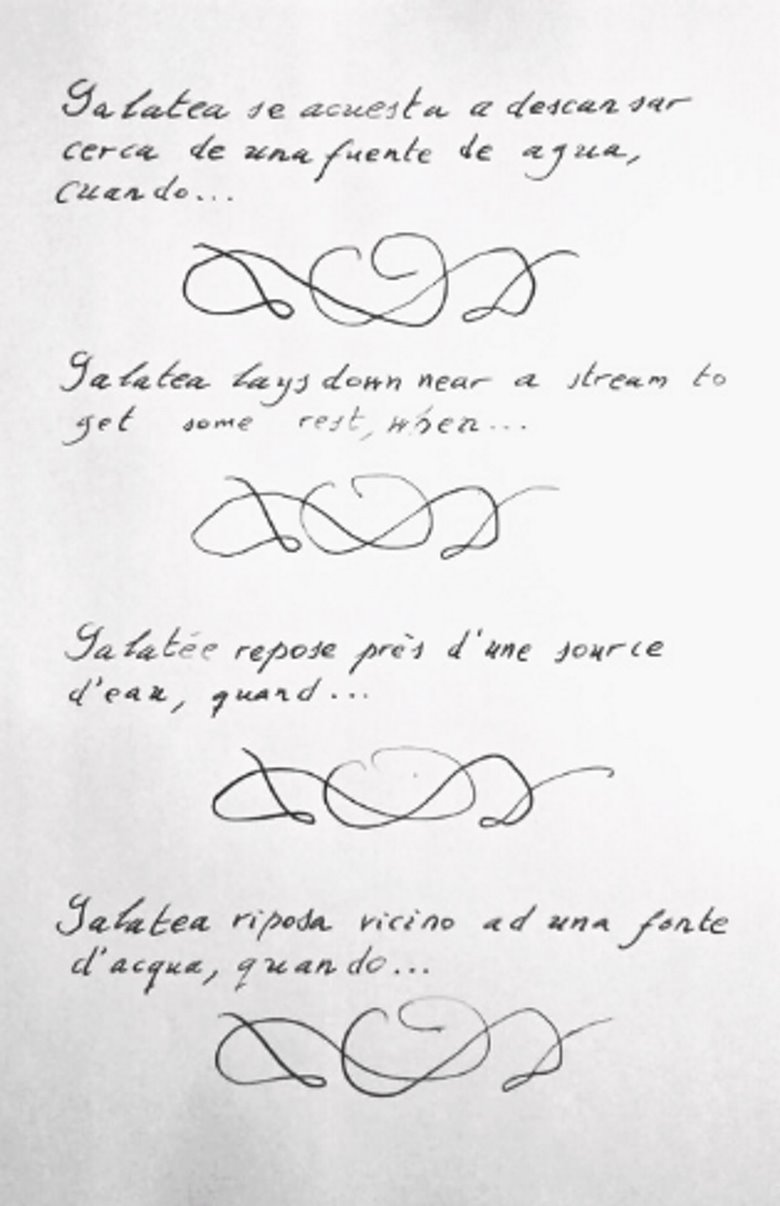 Galatea se acuesta a descansar
cerca de una fuente de agua,
cuando...
Galatea lays down near a stream to
get some rest, when...
Galatée repose près d'une source
d'eau, quand...
Galatea riposa vicino ad una fonte
d'acqua, quando...